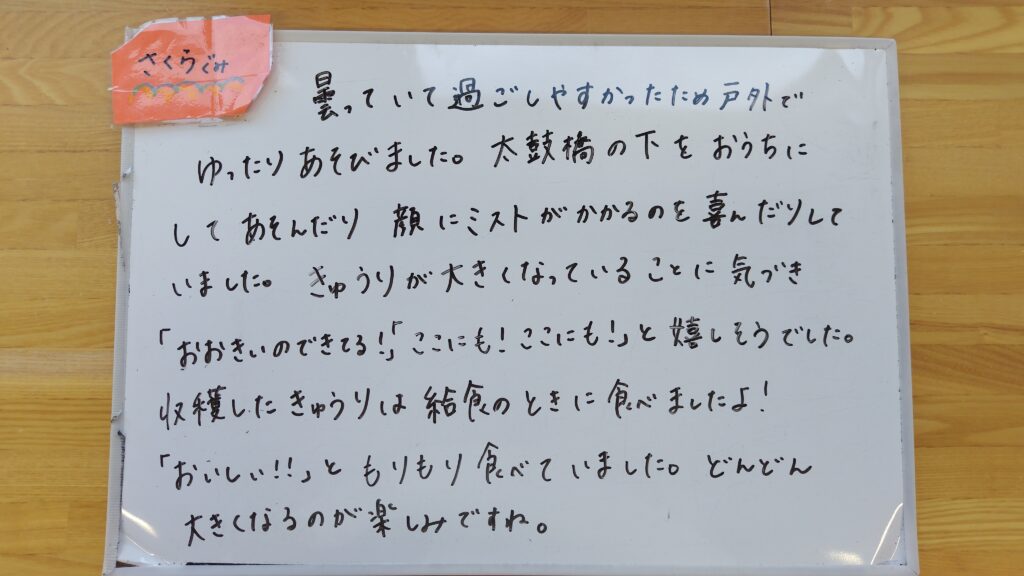 さくらぐみ
曇っていて過ごしやすかったため戸外で
ゆったりあそびました。太鼓橋の下をおうちに
してあそんだり 顔にミストがかかるのを喜んだりして
いました。きゅうりが大きくなっていることに気づき
「おおきいのできてる!」「ここにも!ここにも!」と嬉しそうでした。
収穫したきゅうりは給食のときに食べましたよ!
「おいしい!!」ともりもり食べていました。どんどん
大きくなるのが楽しみですね。